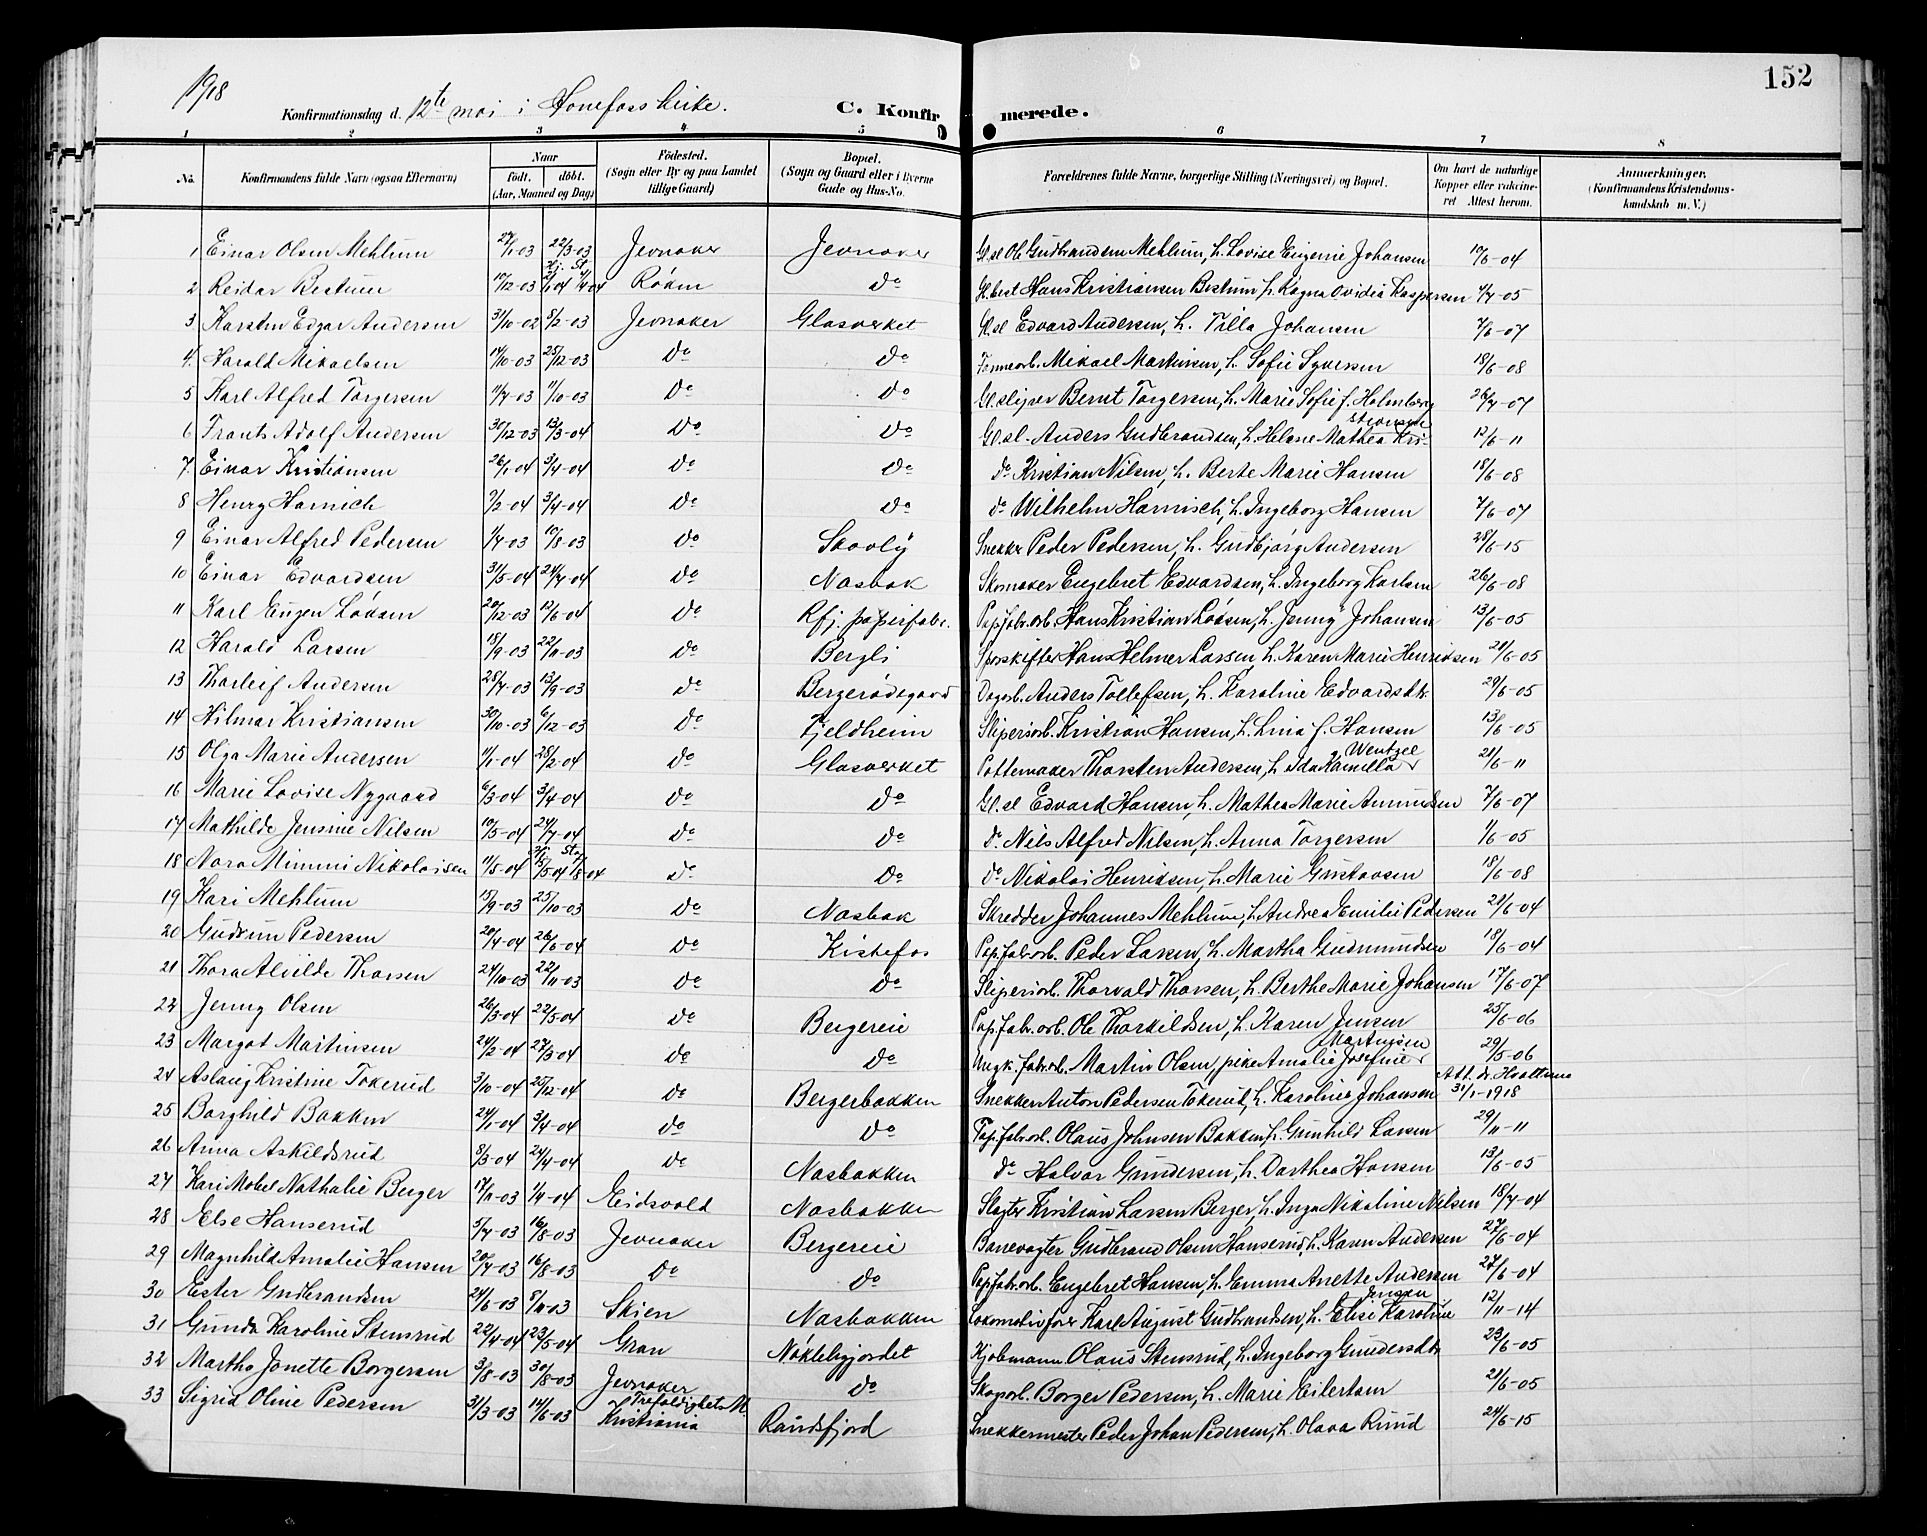 1918
152
Konfirmationsdag d. 12te mai i Hønefoss kirke. C. Konfirmerede.
1 2 3 4 5 6 7 8
No. Konfirmandens fulde Navn (ogsaa Efternavn) Naar Födt. döbt. (Aar, Maaned og Dag) Födested. (Sogn eller By og paa Landet tillige Gaard) Bopæl. (Sogn og Gaard eller i Byerne Gade og Hus-No. Forældrenes fulde Navne, borgerlige Stilling (Næringsvei) og Bopæl. Om havt de naturlige Kopper eller vaccineret Attest herom. Anmærkninger. (Konfirmandens Kristendomskundskab m. V.)
1 Einar Olsen Mehlum 27/1-03 22/3-03 Jevnaker Jevnaker Gl.sl Ole Gudbrandsen Mehlum, h. Lovise Eugenie Johansen 10/6-04
2 Reidar Bestum 10/12-03 Hj. St. Røken do Hans Kristiansen Bestum h. Ragna Ovidia Kaspersen 4/7-05
3 Karsten Edgar Andersen 31/10-02 8/2-03 Jevnaker Glasverket Gl.sl Edvard Andersen, h. Tilla Johansen 7/6-07
4. Harald Mikaelsen 14/10-03 25/12-03 do do Mikael Martinsen, h. Sofie Syversen 18/6-08
5 Karl Alfred Torgersen 11/7-03 11/10-03 do do Gl.sliper Bernt Torgersen, h. Marie Sofie f. Holmberg 26/7-07
6 Frants Adolf Andersen 30/12-03 13/3-04 do do Gl.sl. Anders Gudbrandsen, h. Helene Mathea Kristiansen 12/6-11
7. Einar Kristiansen 26/1-04 3/4-04 do do do Kristian Nilsen, h. Berte Marie Hansen 18/6-08
8 Henry Harnich 7/2-04 3/4-04 do do do Wilhelm Harnisch, h. Ingeborg Hansen 7/6-07
9 Einar Alfred Pedersen 1/4-03 10/8-03 do Skovly Snekker Peder Pedersen, h. Gudbjørg Andersen 28/6-15
10 Einar Edvardsen 31/5-04 24/7-04 do Nasbak Skomaker Engebret Edvardsen, h. Ingeborg Karlsen 26/6-08
11 Karl Eugen Løvsen 20/12-03 12/6-04 do Rfj. papirfabr. Papfabr.arb. Hans Kristian Løvsen, h. Jenny Johansen 13/6-05
12 Harald Larsen 18/9-03 22/11-03 do Bergli Sporskifter Hans Helmer Larsen, h. Karen Marie Henriksen 21/6-05
13 Thorleif Andersen 28/7-03 13/9-03 do Bergerødegaard Dagarb. Anders Tollefsen, h. Karoline Edvardsdtr. 29/6-05
14 Hilmar Kristiansen 30/10-03 6/12-03 do Fjeldheim Sliperiarb. Kristian Hansen, h. Lina f. Hansen 13/6-05
15 Olga Marie Andersen 11/1-04 28/2-04 do Glasverket Pottemaker Thorsten Andersen, h. Ida Kamilla Wentzel 21/6-11
16 Marie Lovise Nygaard 6/3-04 3/4-04 do do Gl.sl Edvard Hansen, h. Mathea Marie Amundsen 7/6-07
17 Mathilde Jensine Nilsen 10/5-04 24/7-04 do do do Nils Alfred Nilsen, h. Anna Torgersen 1/6-05
18 Nora Mimmi Nikolaisen 11/5-04 Hj. St. do do do Nikolai Henriksen, h. Marie Gustavsen 18/6-08
19 Kari Mehlum 15/9-03 25/10-03 do Nasbak Skredder Johannes Mehlum, h. Andrea Emilie Pedersen 21/6-04
20 Gudrun Pedersen 20/4-04 26/6-04 do Kistefos Papfabr.arb. Peder Larsen, h. Martha Gudmundsen 18/6-04
21 Thora Alvilde Thorsen 24/10-03 22/11-03 do do Sliperiarb. Thorvald Thorsen, h. Berthe Marie Johansen 17/6-07
22 Jenny Olsen 26/3-04 22/5-04 do Bergereie Papfabr.arb. Ole Thorkildsen, h. Karen Jensen 25/6-06
23 Margot Martinsen 24/2-04 27/3-04 do do Ungk. fabr.arb. Martin Olsen, pike Amalie Josefine Martinsen 29/5-06
24 Aslaug Kristine Tokerud 3/10-04 25/12-04 do Bergerbakken Snekker Anton Pedersen Tokerud, h. Karoline Johansen Att. dr. 31/1-1918
25 Borghild Bakken 24/1-04 3/4-04 do do Papfabr.arb. Olaus Johnsen Bakken, h. Gunhild Larsen 29/11-11
26 Anna Askildsrud 8/3-04 24/4-04 do Nasbakken do Halvor Gundersen, h. Dorthea Hansen 13/6-05
27 Kari Mobel Nathalie Berger 17/11-03 1/4-04 Eidsvold Nasbakken Slagter Kristian Larsen Berger, h. Inga Nikoline Nilsen 18/7-04
28 Else Hanserud 5/7-03 16/8-03 Jevnaker Bergereie Banevogter Gudbrand Olsen Hanserud, h. Karen Andersen 27/6-04
29 Magnhild Amalie Hansen 20/7-03 16/8-03 do do Papfabr.arb. Engebret Hansen, h. Emma Anette Andersen 27/6-04
30 Ester Gudbrandsen 21/6-03 8/11-03 Skien Nasbakken Lokomotivfører Karl August Gudbrandsen, h. Elise Karoline Jensen 12/11-14
31 Gunda Karoline Stensrud 22/4-04 23/5-04 Gran Nøklebygjordet Kjøbmann Olaus Stensrud, h. Ingeborg Gundersdtr 23/6-05
32 Martha Jonette Borgersen 3/8-03 30/8-03 Jevnaker do Skogarb. Borger Pedersen, h. Marie Eilertsen 21/6-05
33 Sigrid Oline Pedersen 31/3-03 14/6-03 Trefoldighets M. Kristiania Randsfjord Snekkermester Peder Johan Pedersen, h. Olava Ruud 24/6-15